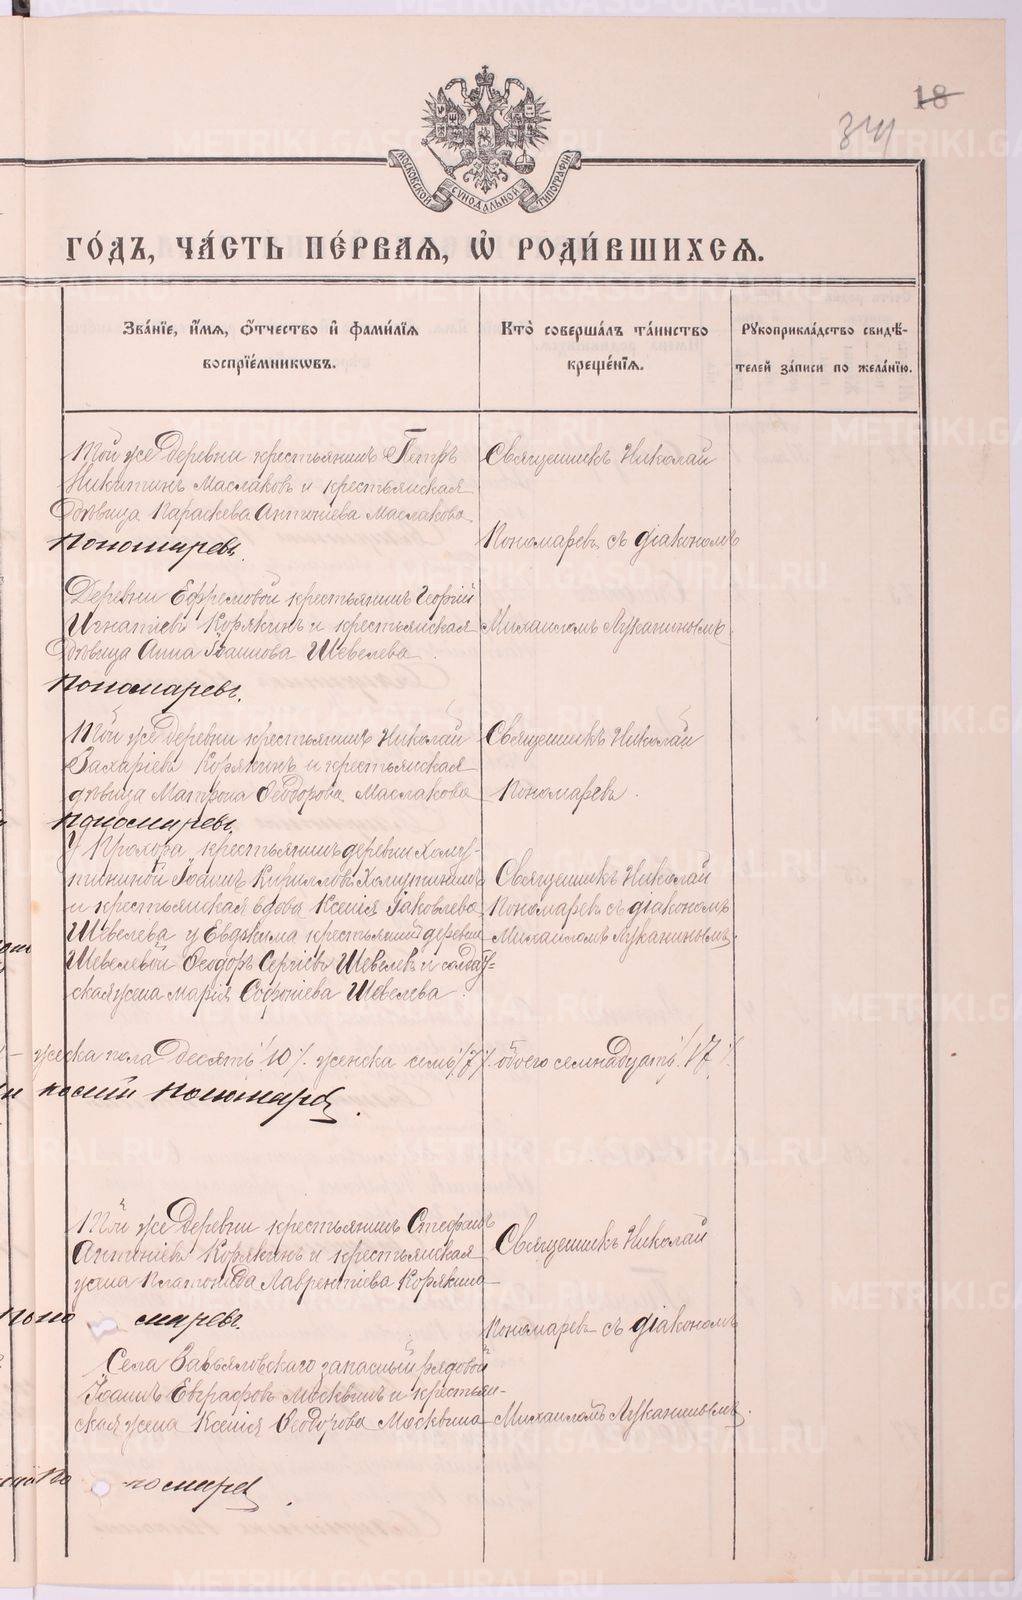 18
34
МОСКОВСКОЙ СУНОДАЛЬНОЙ ТИПОГРАФІИ
ГО́ДЪ, ЧА́СТЬ ПЕ́РВАѦ, Ѡ҆ РОДИ́ВШИХСѦ.
Зва́нїе, и҆́мѧ, ѻ҆́тчество и҆ фами́лїѧ
воспрїе́мникѡвъ.
Кто̀ соверша́лъ та́инство
креще́нїѧ.
Рꙋкоприкла́дство свидѣ́-
телей за́писи по жела́нїю.
Той же деревни крестьянинъ Петръ
Никитинъ Маслаковъ и крестьянская
дѣвица Параскева Антоніева Маслакова
Пономаревъ.
Священникъ Николай
Пономаревъ съ діакономъ
Деревни Ефремовой крестьянинъ Георгій
Игнатіевъ Корякинъ и крестьянская
дѣвица Анна Іоаннова Шевелева.
Пономаревъ.
Михаиломъ Лукаинымъ
Той же деревни крестьянинъ Николай
Захаріевъ Корякинъ и крестьянская
дѣвица Матрона Ѳеодорова Маслакова
Пономаревъ.
Священникъ Николай
Пономаревъ.
У Прохора крестьянинъ деревни Хому-
тининой Іоаннъ Кирилловъ Хомутининъ
и крестьянская вдова Ксенія Іаковлева
Шевелева у Евдокима крестьянинъ деревни
Шевелевой Ѳеодоръ Сергіевъ Шевелевъ и солдат-
ская жена Марія Софоніева Шевелева.
Священникъ Николай
Пономаревъ съ діакономъ
Михаиломъ Лукаинымъ.
жеска пола десять /10/. женска семь /7/. обоего семнадцать /17/.
Пономаревъ.
Той же деревни крестьянинъ Стефанъ
Антоніевъ Корякинъ и крестьянская
жена Платонида Лаврентіева Корякина
Поно маревъ.
Священникъ Николай
Пономаревъ съ діакономъ
Села Завьяловскаго запасный рядовой
Іоаннъ Евграфовъ Москвинъ и крестьян-
ская жена Ксенія Ѳеодорова Москвина
Михаиломъ Лукаинымъ.
По номаревъ.
METRIKI.GASO-URAL.RU